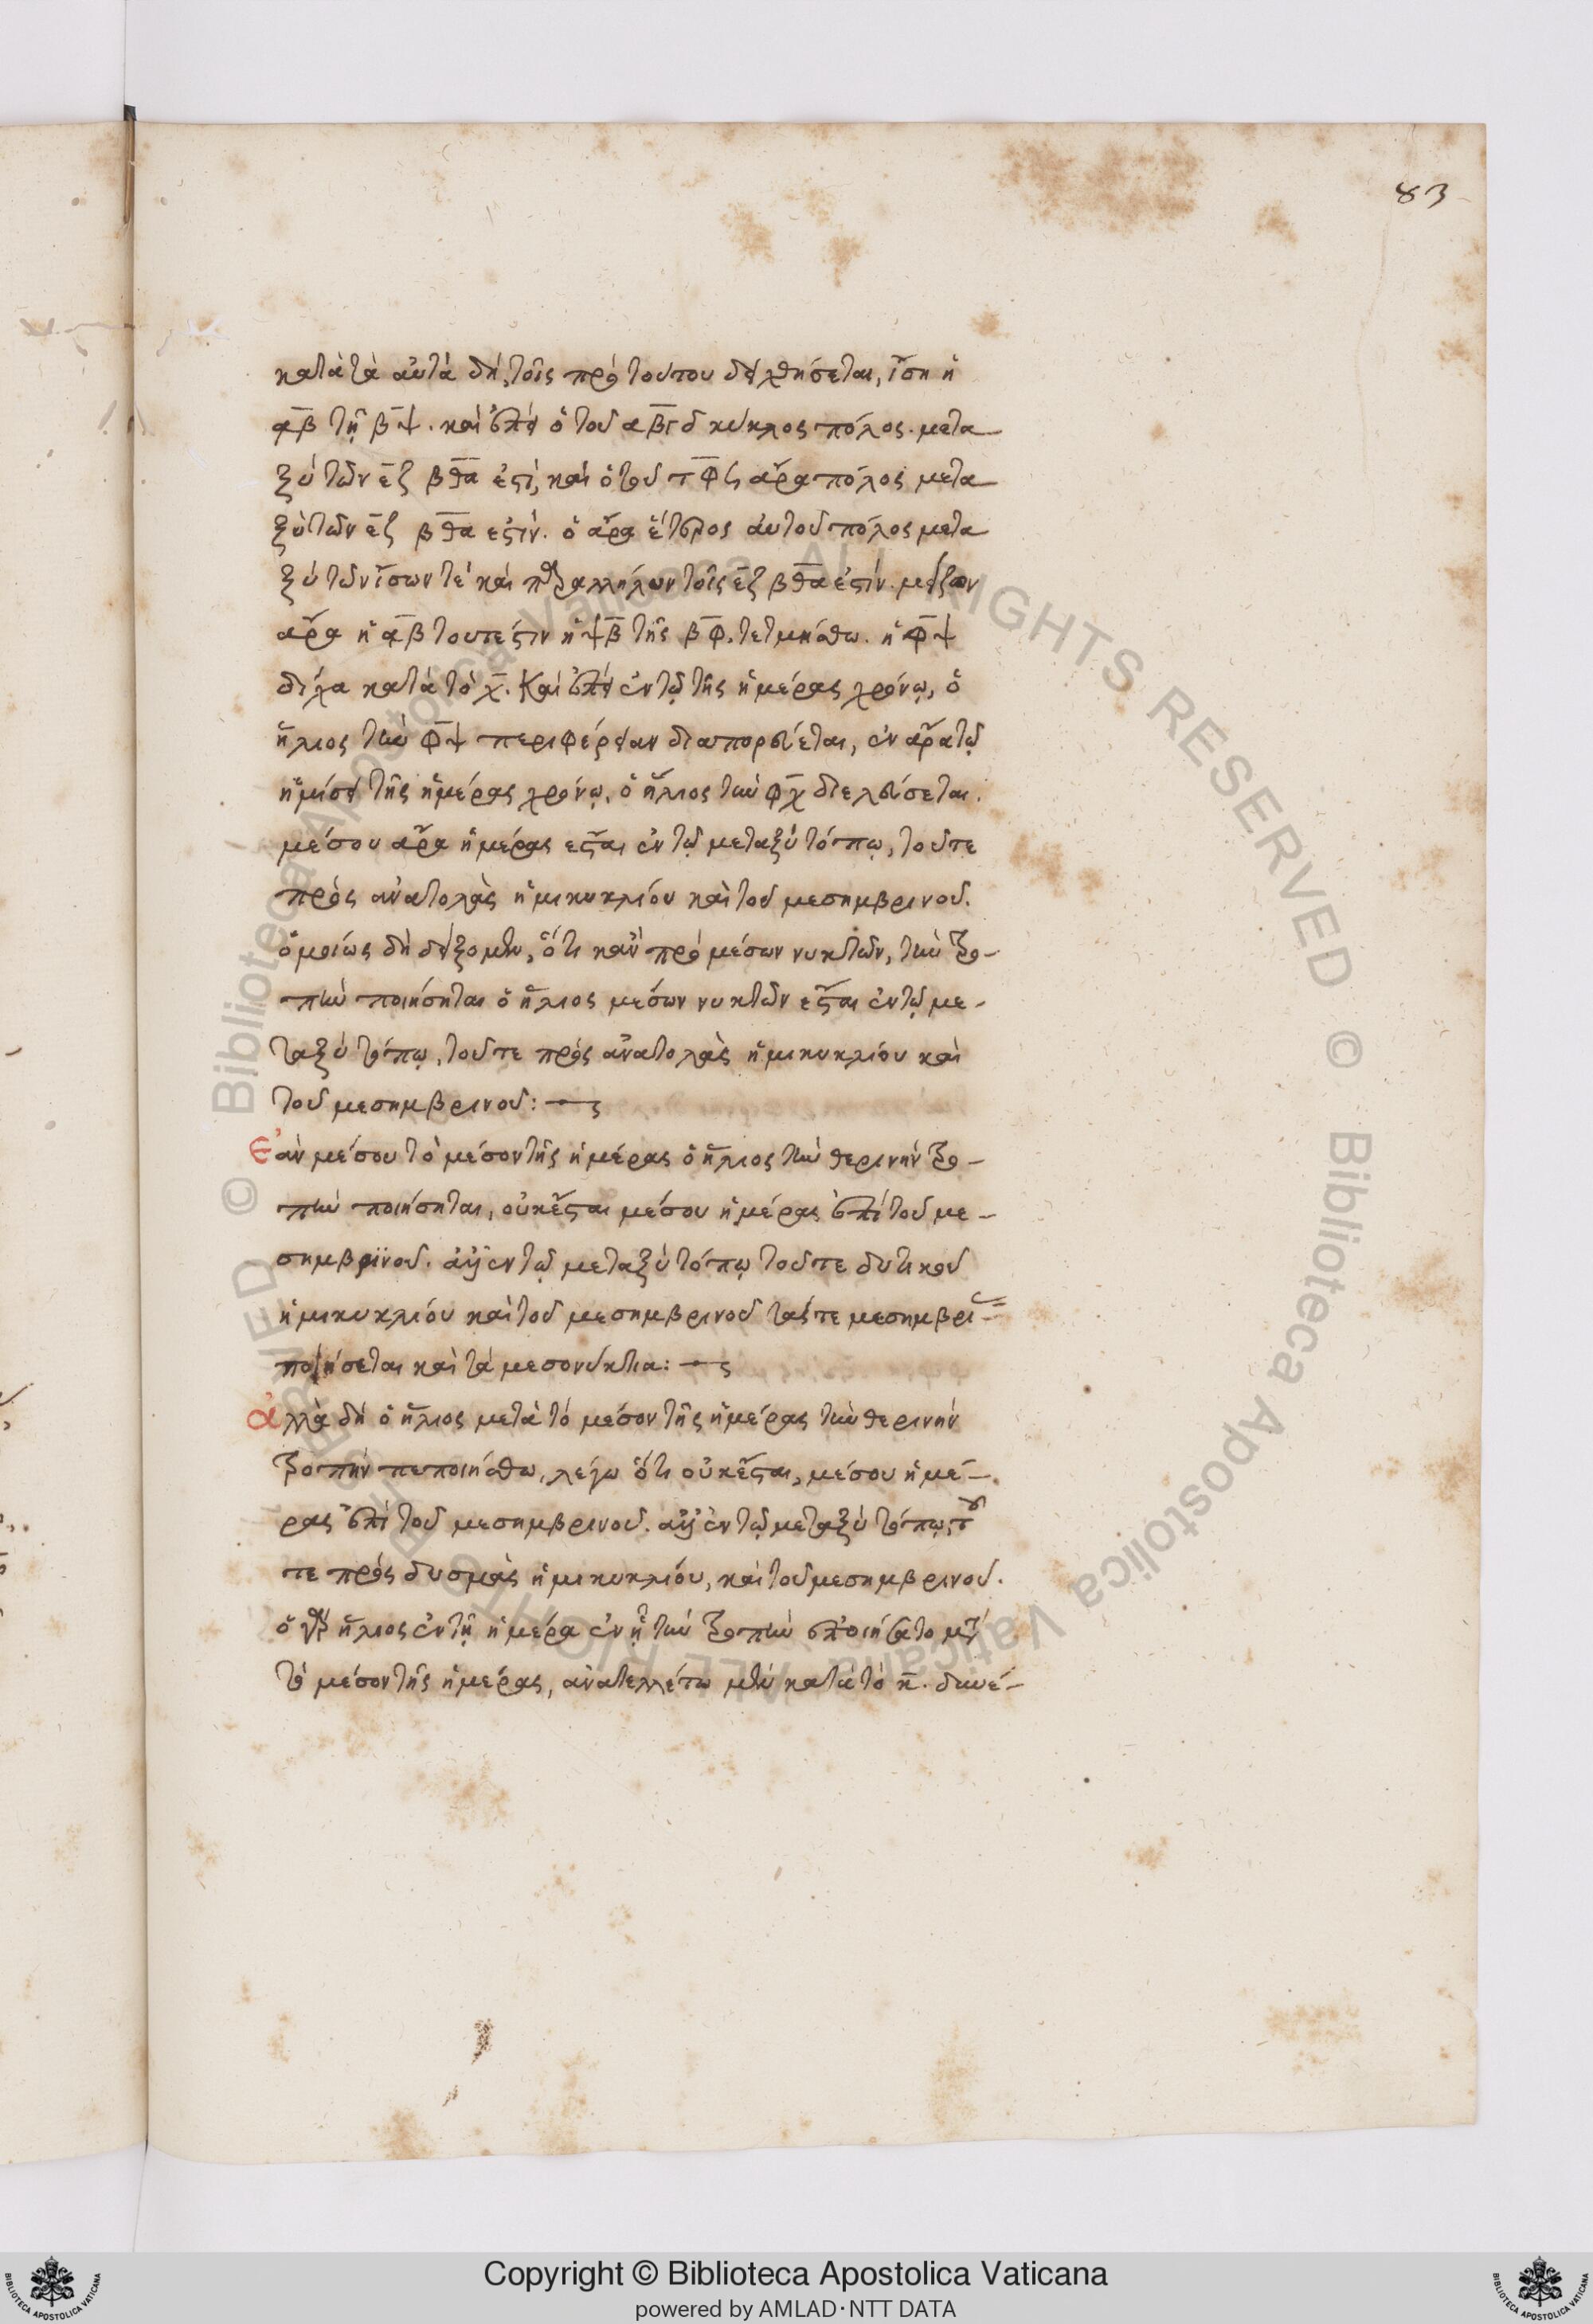 83
κατὰ τὰ αὐτὰ δὴ, τοῖς πρὸ τούτου δειχθήσεται, ἴση ἡ
α̅β̅ τῇ β̅ψ̅. καὶ ἐπεὶ ὁ τοῦ α̅β̅γ̅δ̅ κύκλος πόλος. μετα
ξὺ τῶν ε̅ζ̅ β̅θ̅α̅ ἐστὶ, καὶ ὁ τοῦ ἄρα πόλος μετα
ξὺ τῶν ε̅ζ̅ β̅θ̅α̅ ἐστίν. ὁ ἄρα ἕτερος αὐτοῦ πόλος μετα
ξὺ τῶν ἴσων τὲ καὶ παραλλήλων τοῖς ε̅ζ̅ β̅θ̅α̅ ἐστίν. μείζων
ἄρα ἡ α̅β̅ τουτέστιν ἡ ψ̅β̅ τῆς β̅φ̅. τετμήσθω. ἡ φ̅ψ̅
δίχα κατὰ τὸ χ̅. καὶ ἐπεὶ ἐν τῷ τῆς ἡμέρας χρόνῳ, ὁ
ἥλιος τὴν φ̅ψ̅ περιφέρειαν διαπορεύεται, ἐν ἄρα τῷ
ἡμίσει τῆς ἡμέρας χρόνῳ, ὁ ἥλιος τὴν φ̅χ̅ διελεύσεται.
μέσου ἄρα ἡμέρας ἔσται ἐν τῷ μεταξὺ τόπῳ, τοῦ τε
πρὸς ἀνατολὰς ἡμικυκλίου καὶ τοῦ μεσημβρινοῦ.
ὁμοίως δὴ δείξομεν, ὅτι κἂν πρὸ μέσων νυκτῶν, τὴν τρο-
πὴν ποιήσηται ὁ ἥλιος μέσων νυκτῶν ἔσται ἐν τῷ με-
ταξὺ τόπῳ, τοῦ τε πρὸς ἀνατολὰς ἡμικυκλίου καὶ
τοῦ μεσημβρινοῦ:
Ἐὰν μέσου τὸ μέσον τῆς ἡμέρας ὁ ἥλιος τὴν θερινὴν τρο-
πὴν ποιήσηται, οὐκ ἔσται μέσου ἡμέρας ἐπὶ τοῦ με-
σημβρϊνοῦ. ἀλλ' ἐν τῷ μεταξὺ τόπῳ τοῦ τε δυτικοῦ
ἡμικυκλίου καὶ τοῦ μεσημβρινοῦ τάς τε μεσημβρί-
ποιήσεται καὶ τὰ μεσονύκτια:
ἀλλὰ δὴ ὁ ἥλιος μετὰ τὸ μέσον τῆς ἡμέρας τὴν θερινὴν
τροπὴν πεποιήσθω, λέγω ὅτι οὐκ ἔσται, μέσου ἡμέ-
ρας ἐπὶ τοῦ μεσημβρινοῦ. ἀλλ' ἐν τῷ μεταξὺ τόπῳ, τοῦ
τε πρὸς δυσμὰς ἡμικυκλίου, καὶ τοῦ μεσημβρινοῦ.
ὁ γὰρ ἥλιος ἐν τῇ ἡμέρα ἐν ἧ τὴν τροπὴν ἐποιήσατο μετὰ
τὸ μέσον τῆς ἡμέρας, ἀνατελλέτω μὲν κατὰ τὸ κ̅. δυνέ-
Copyright © Biblioteca Apostolica Vaticana
powered by AMLAD·NTT DATA